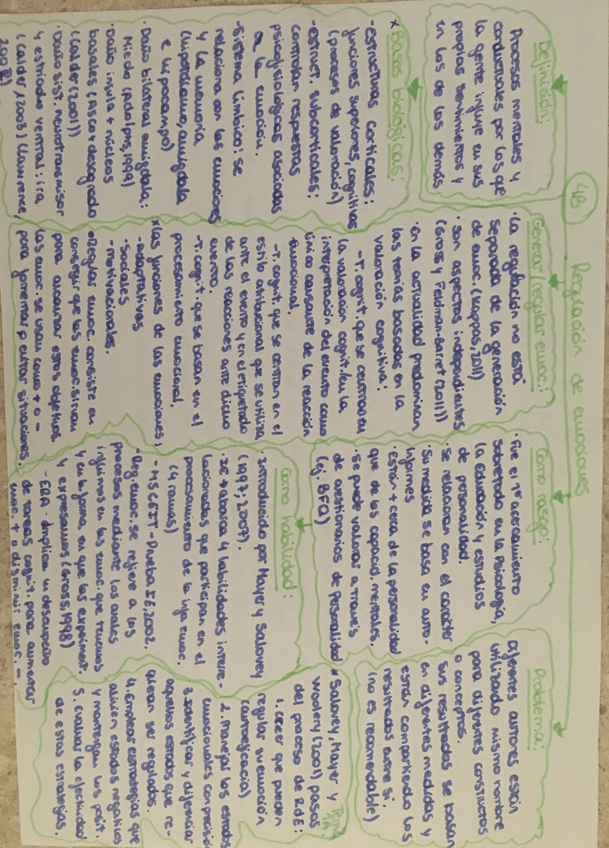 48 Regulación de emociones
Definición:
Procesos mentales y
conductuales por los q̃
la gente influye en sus
propios sentimientos y
en los de los demás
* Bases biológicas:
-estructuras corticales:
funciones superiores, cognitivas
(procesos de valoración)
-estruct. subcorticales:
controlan respuestas
psicofisiológicas asociadas
a la emoción.
-Sistema límbico: se
relaciona con las emociones
y la memoria
(hipotálamo, amígdala
e hipocampo)
· Daño bilateral amígdala:
Miedo (Adolphs, 1999)
· Daño ínsula + núcleos
basales (Asco + desagrado
(Calder (2001))
· Daño sist. neurotransmisor
y estriado ventral: ira
(Calder, 2003) (Lawrence,
2002)
Generar/regular emoc.:
· La regulación no está
separada de la generación
de emoc. (Kappas, 2011)
· son aspectos independientes
(Gross y Feldman-Barret (2011))
· en la actualidad predominan
las teorías basadas en la
valoración cognitiva:
-T. cognit. que se centran en
la valoración cognit. de la
interpretación del evento como
único causante de la reacción
emocional.
-T. cognit. que se centran en el
estilo atribucional que se utiliza
ante el evento y en el etiquetado
de las reacciones ante dicho
evento.
-T. cognit. que se basan en el
procesamiento emocional.
* Las funciones de las emociones:
-adaptativas
-sociales
-motivacionales.
* Regular emoc. consiste en
conseguir que las emoc. sirvan
para alcanzar estos objetivos.
Las emoc. se usan como + o -
para fomentar o evitar situaciones.
Como rasgo:
· Fue el 1er acercamiento
sobretodo en la Psicología,
la Educación y estudios
de personalidad.
· se relacionan con el carácter
· Su medida se basa en auto-
informes
· Están + cerca de la personalidad
que de las capacid. mentales.
· Se puede valorar a través
de cuestionarios de personalidad
(ej. BFQ)
Como habilidad:
· Introducido por Mayer y Salovey
(1997; 2007).
· Se elabora 4 habilidades interre-
lacionadas que participan en el
procesamiento de la info emoc.
(4 ramas)
- MSCEIT - Prueba IE, 2002.
· Reg. emoc. se refiere a los
procesos mediante los cuales
influimos en las emoc. que tenemos
y en la forma en que las experiment.
y expresamos (Gross, 1998)
- ERA: implica un desempeño
de tareas cognit. para aumentar
emoc. + o disminuir emoc. -.
Problema:
Diferentes autores están
utilizando mismo nombre
para diferentes constructos
o conceptos.
Sus resultados se basan
en diferentes medidas y
están compartiendo los
resultados entre sí.
(no es recomendable)
* Salovey, Mayer y
Woolery (2001) pasos
del proceso de RdE:
1. creer que pueden
regular su emoción
(autoeficacia)
2. Manejar los estados
emocionales con precisión
3. Identificar y diferenciar
aquellos estados que re-
quieran ser regulados.
4. Emplear estrategias que
alivien estados negativos
y mantengan los posit.
5. Evaluar la efectividad
de estas estrategias.